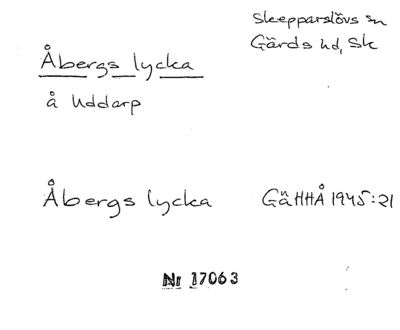 Skepparslövs sn
Gärds hd, Sk
Åbergs lycka
å Uddarp
Åbergs lycka GäHHÅ 1945:21
Nr 17063